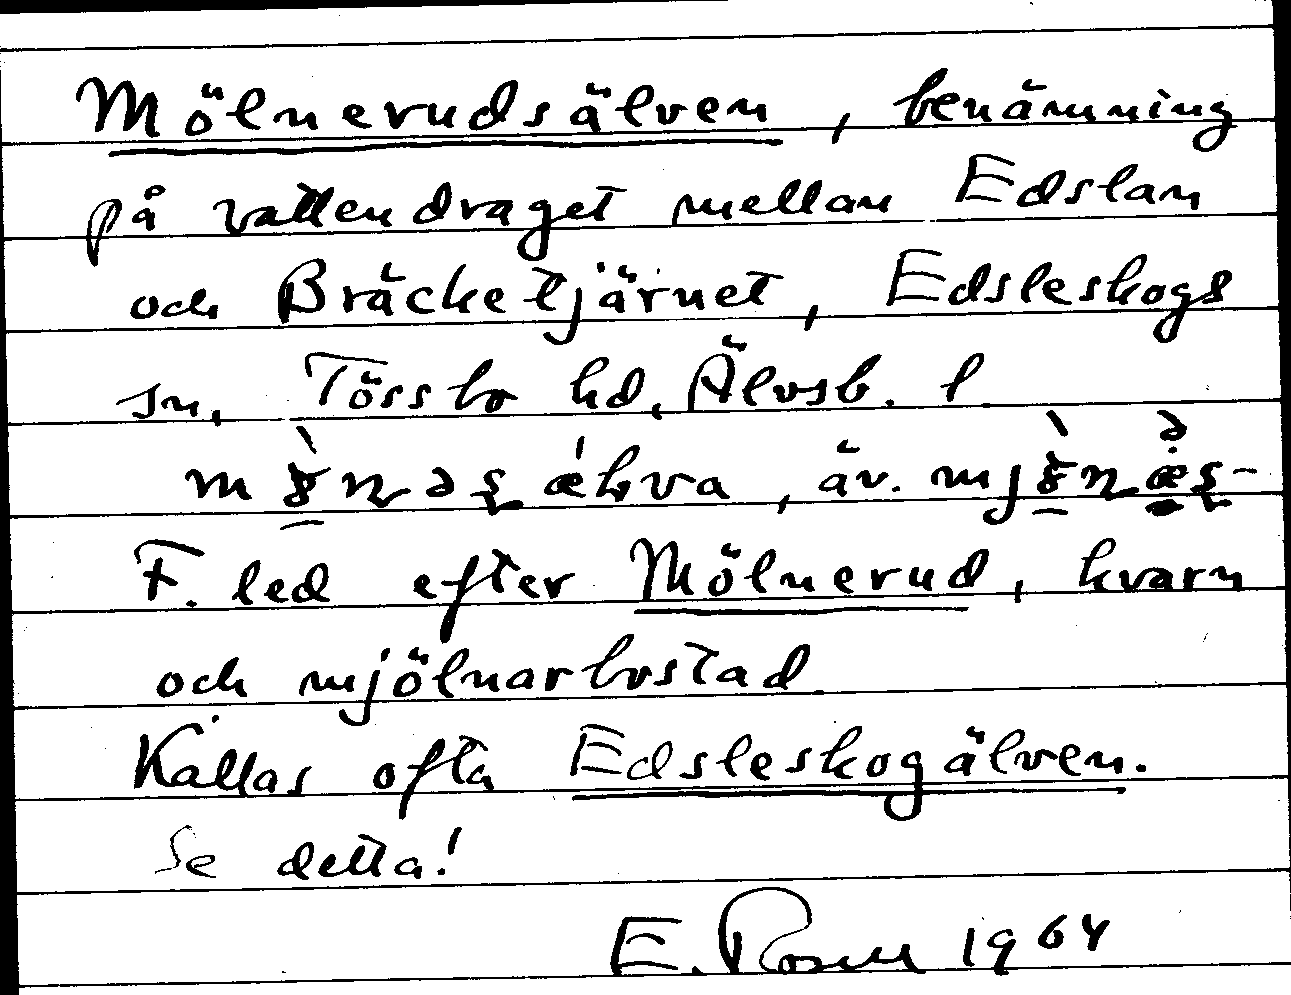 Mölnerudsälven, benämning
på vattendraget mellan Edslan
och Bräcketjärnet, Edsleskogs
sn, Tössbo hd, Älvsb. l
äv.
F. led efter Mölnerud, kvarn
och mjölnarbostad
Kallas ofta Edsleskogälven.
Se detta!
E. 1964